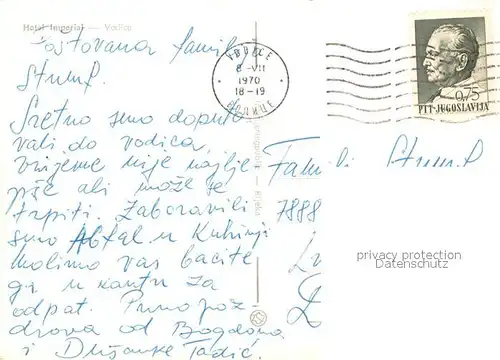 Hotel Imperial — Vodice
Poštovana familio
Stumf.
Sretno smo doputo
vali do vodica,
vrijeme nije najlje
pše ali može se
trpiti. Zaboravili
smo Abfal u Kuhinji
Molimo vas bacite
ga u kantu za
odpat. Puno poz
drava od Bogdana
i Dušanke Tadić.
VODICE
8-VII
1970
18-19
0,75
PTT-JUGOSLAVIJA
Famili Stumf
7888
privacy protection
Datenschutz